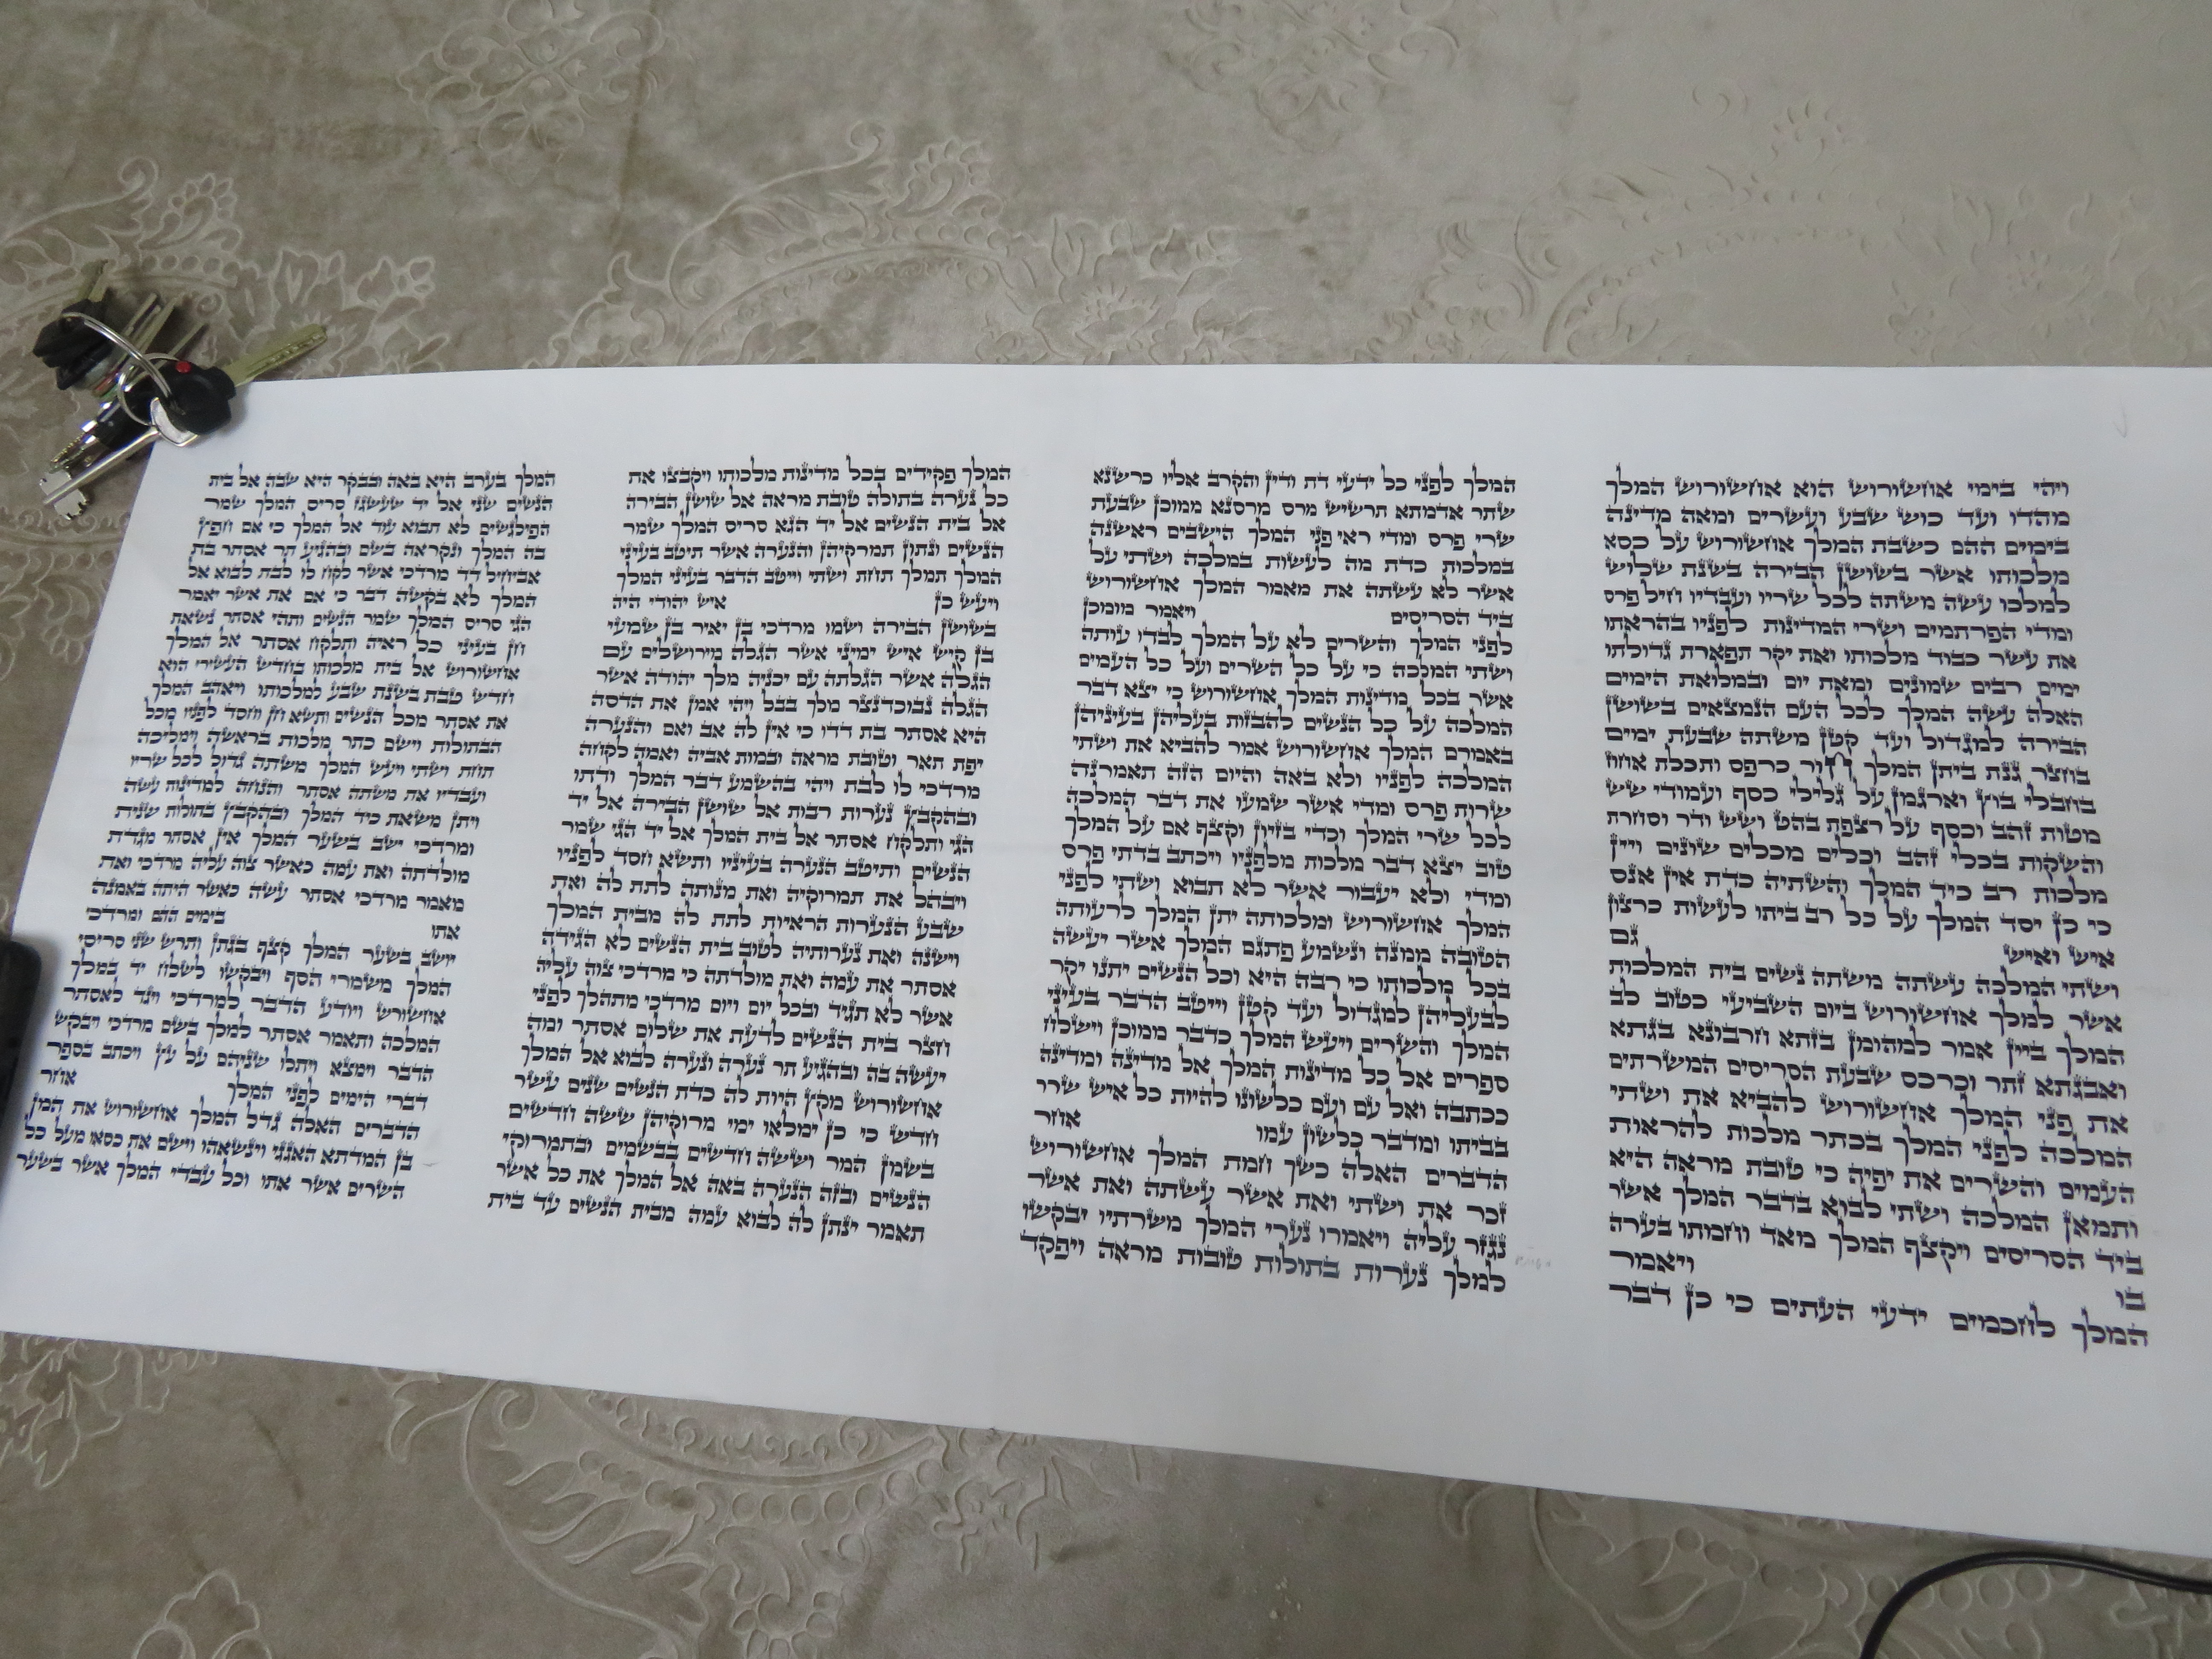 ויהי בימי אחשורוש הוא אחשורוש המלך
מהדו ועד כוש שבע ועשרים ומאה מדינה
בימים ההם כשבת המלך אחשורוש על כסא
מלכותו אשר בשושן הבירה בשנת שלוש
למלכו עשה משתה לכל שריו ועבדיו חיל פרס
ומדי הפרתמים ושרי המדינות לפניו בהראתו
את עשר כבוד מלכותו ואת יקר תפארת גדולתו
ימים רבים שמונים ומאת יום ובמלואת הימים
האלה עשה המלך לכל העם הנמצאים בשושן
הבירה למגדול ועד קטן משתה שבעת ימים
בחצר גנת ביתן המלך חור כרפס ותכלת אחוז
בחבלי בוץ וארגמן על גלילי כסף ועמודי שש
מטות זהב וכסף על רצפת בהט ושש ודר וסחרת
והשקות בכלי זהב וכלים מכלים שונים ויין
מלכות רב כיד המלך והשתיה כדת אין אנס
כי כן יסד המלך על כל רב ביתו לעשות כרצון
איש ואיש גם
ושתי המלכה עשתה משתה נשים בית המלכות
אשר למלך אחשורוש ביום השביעי כטוב לב
המלך ביין אמר למהומן בזתא חרבונא בגתא
ואבגתא זתר וכרכס שבעת הסריסים המשרתים
את פני המלך אחשורוש להביא את ושתי
המלכה לפני המלך בכתר מלכות להראות
העמים והשרים את יפיה כי טובת מראה היא
ותמאן המלכה ושתי לבוא בדבר המלך אשר
ביד הסריסים ויקצף המלך מאד וחמתו בערה
בו ויאמר
המלך לחכמים ידעי העתים כי כן דבר
המלך לפני כל ידעי דת ודין והקרב אליו כרשנא
שתר אדמתא תרשיש מרס מרסנא ממוכן שבעת
שרי פרס ומדי ראי פני המלך הישבים ראשנה
במלכות כדת מה לעשות במלכה ושתי על
אשר לא עשתה את מאמר המלך אחשורוש
ביד הסריסים ויאמר מומכן
לפני המלך והשרים לא על המלך לבדו עותה
ושתי המלכה כי על כל השרים ועל כל העמים
אשר בכל מדינות המלך אחשורוש כי יצא דבר
המלכה על כל הנשים להבזות בעליהן בעיניהן
באמרם המלך אחשורוש אמר להביא את ושתי
המלכה לפניו ולא באה והיום הזה תאמרנה
שרות פרס ומדי אשר שמעו את דבר המלכה
לכל שרי המלך וכדי בזיון וקצף אם על המלך
טוב יצא דבר מלכות מלפניו ויכתב בדתי פרס
ומדי ולא יעבור אשר לא תבוא ושתי לפני
המלך אחשורוש ומלכותה יתן המלך לרעותה
הטובה ממנה ונשמע פתגם המלך אשר יעשה
בכל מלכותו כי רבה היא וכל הנשים יתנו יקר
לבעליהן למגדול ועד קטן וייטב הדבר בעיני
המלך והשרים ויעש המלך כדבר ממוכן וישלח
ספרים אל כל מדינות המלך אל מדינה ומדינה
ככתבה ואל עם ועם כלשונו להיות כל איש שרר
בביתו ומדבר כלשון עמו אחר
הדברים האלה כשך חמת המלך אחשורוש
זכר את ושתי ואת אשר עשתה ואת אשר
נגזר עליה ויאמרו נערי המלך משרתיו יבקשו
למלך נערות בתולות טובות מראה ויפקד
המלך פקידים בכל מדינות מלכותו ויקבצו את
כל נערה בתולה טובת מראה אל שושן הבירה
אל בית הנשים אל יד הגא סריס המלך שמר
הנשים ונתון תמרקיהן והנערה אשר תיטב בעיני
המלך תמלך תחת ושתי וייטב הדבר בעיני המלך
ויעש כן איש יהודי היה
בשושן הבירה ושמו מרדכי בן יאיר בן שמעי
בן קיש איש ימיני אשר הגלה מירושלים עם
הגלה אשר הגלתה עם יכניה מלך יהודה אשר
הגלה נבוכדנצר מלך בבל ויהי אמן את הדסה
היא אסתר בת דדו כי אין לה אב ואם והנערה
יפת תאר וטובת מראה ובמות אביה ואמה לקחה
מרדכי לו לבת ויהי בהשמע דבר המלך ודתו
ובהקבץ נערות רבות אל שושן הבירה אל יד
הגי ותלקח אסתר אל בית המלך אל יד הגי שמר
הנשים ותיטב הנערה בעיניו ותשא חסד לפניו
ויבהל את תמרוקיה ואת מנותה לתת לה ואת
שבע הנערות הראיות לתת לה מבית המלך
וישנה ואת נערותיה לטוב בית הנשים לא הגידה
אסתר את עמה ואת מולדתה כי מרדכי צוה עליה
אשר לא תגיד ובכל יום ויום מרדכי מתהלך לפני
חצר בית הנשים לדעת את שלום אסתר ומה
יעשה בה ובהגיע תר נערה ונערה לבוא אל המלך
אחשורוש מקץ היות לה כדת הנשים שנים עשר
חדש כי כן ימלאו ימי מרוקיהן ששה חדשים
בשמן המר וששה חדשים בבשמים ובתמרוקי
הנשים ובזה הנערה באה אל המלך את כל אשר
תאמר ינתן לה לבוא עמה מבית הנשים עד בית
המלך בערב היא באה ובבקר היא שבה אל בית
הנשים שני אל יד שעשגז סריס המלך שמר
הפילגשים לא תבוא עוד אל המלך כי אם חפץ
בה המלך ונקראה בשם ובהגיע תר אסתר בת
אביחיל דד מרדכי אשר לקח לו לבת לבוא אל
המלך לא בקשה דבר כי אם את אשר יאמר
הגי סריס המלך שמר הנשים ותהי אסתר נשאת
חן בעיני כל ראיה ותלקח אסתר אל המלך
אחשורוש אל בית מלכותו בחדש העשירי הוא
חדש טבת בשנת שבע למלכותו ויאהב המלך
את אסתר מכל הנשים ותשא חן וחסד לפניו מכל
הבתולות וישם כתר מלכות בראשה וימליכה
תחת ושתי ויעש המלך משתה גדול לכל שריו
ועבדיו את משתה אסתר והנחה למדינות עשה
ויתן משאת כיד המלך ובהקבץ בתולות שנית
ומרדכי ישב בשער המלך אין אסתר מגדת
מולדתה ואת עמה כאשר צוה עליה מרדכי ואת
מאמר מרדכי אסתר עשה כאשר היתה באמנה
אתו בימים ההם ומרדכי
יושב בשער המלך קצף בגתן ותרש שני סריסי
המלך משמרי הסף ויבקשו לשלח יד במלך
אחשורש ויודע הדבר למרדכי ויגד לאסתר
המלכה ותאמר אסתר למלך בשם מרדכי ויבקש
הדבר וימצא ויתלו שניהם על עץ ויכתב בספר
דברי הימים לפני המלך אחר
הדברים האלה גדל המלך אחשורוש את המן
בן המדתא האגגי וינשאהו וישם את כסאו מעל כל
השרים אשר אתו וכל עבדי המלך אשר בשער